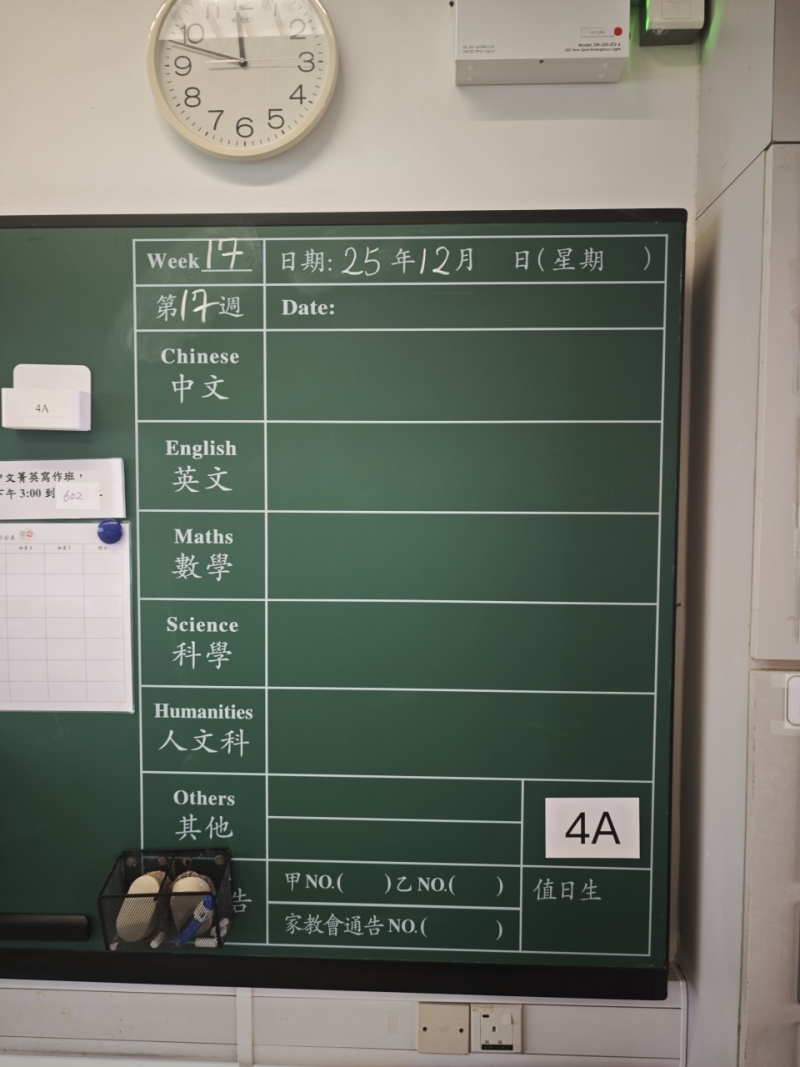 12
2
3
4
5
6
7
8
9
10
Week 17
日期: 25 年 12 月 日(星期 )
第 17 週
Date:
Chinese
中文
4A
English
英文
中文菁英寫作班,
下午 3:00 到 602
Maths
數學
Science
科學
Humanities
人文科
Others
其他
4A
告
甲 NO.( ) 乙 NO.( )
家教會通告 NO.( )
值日生